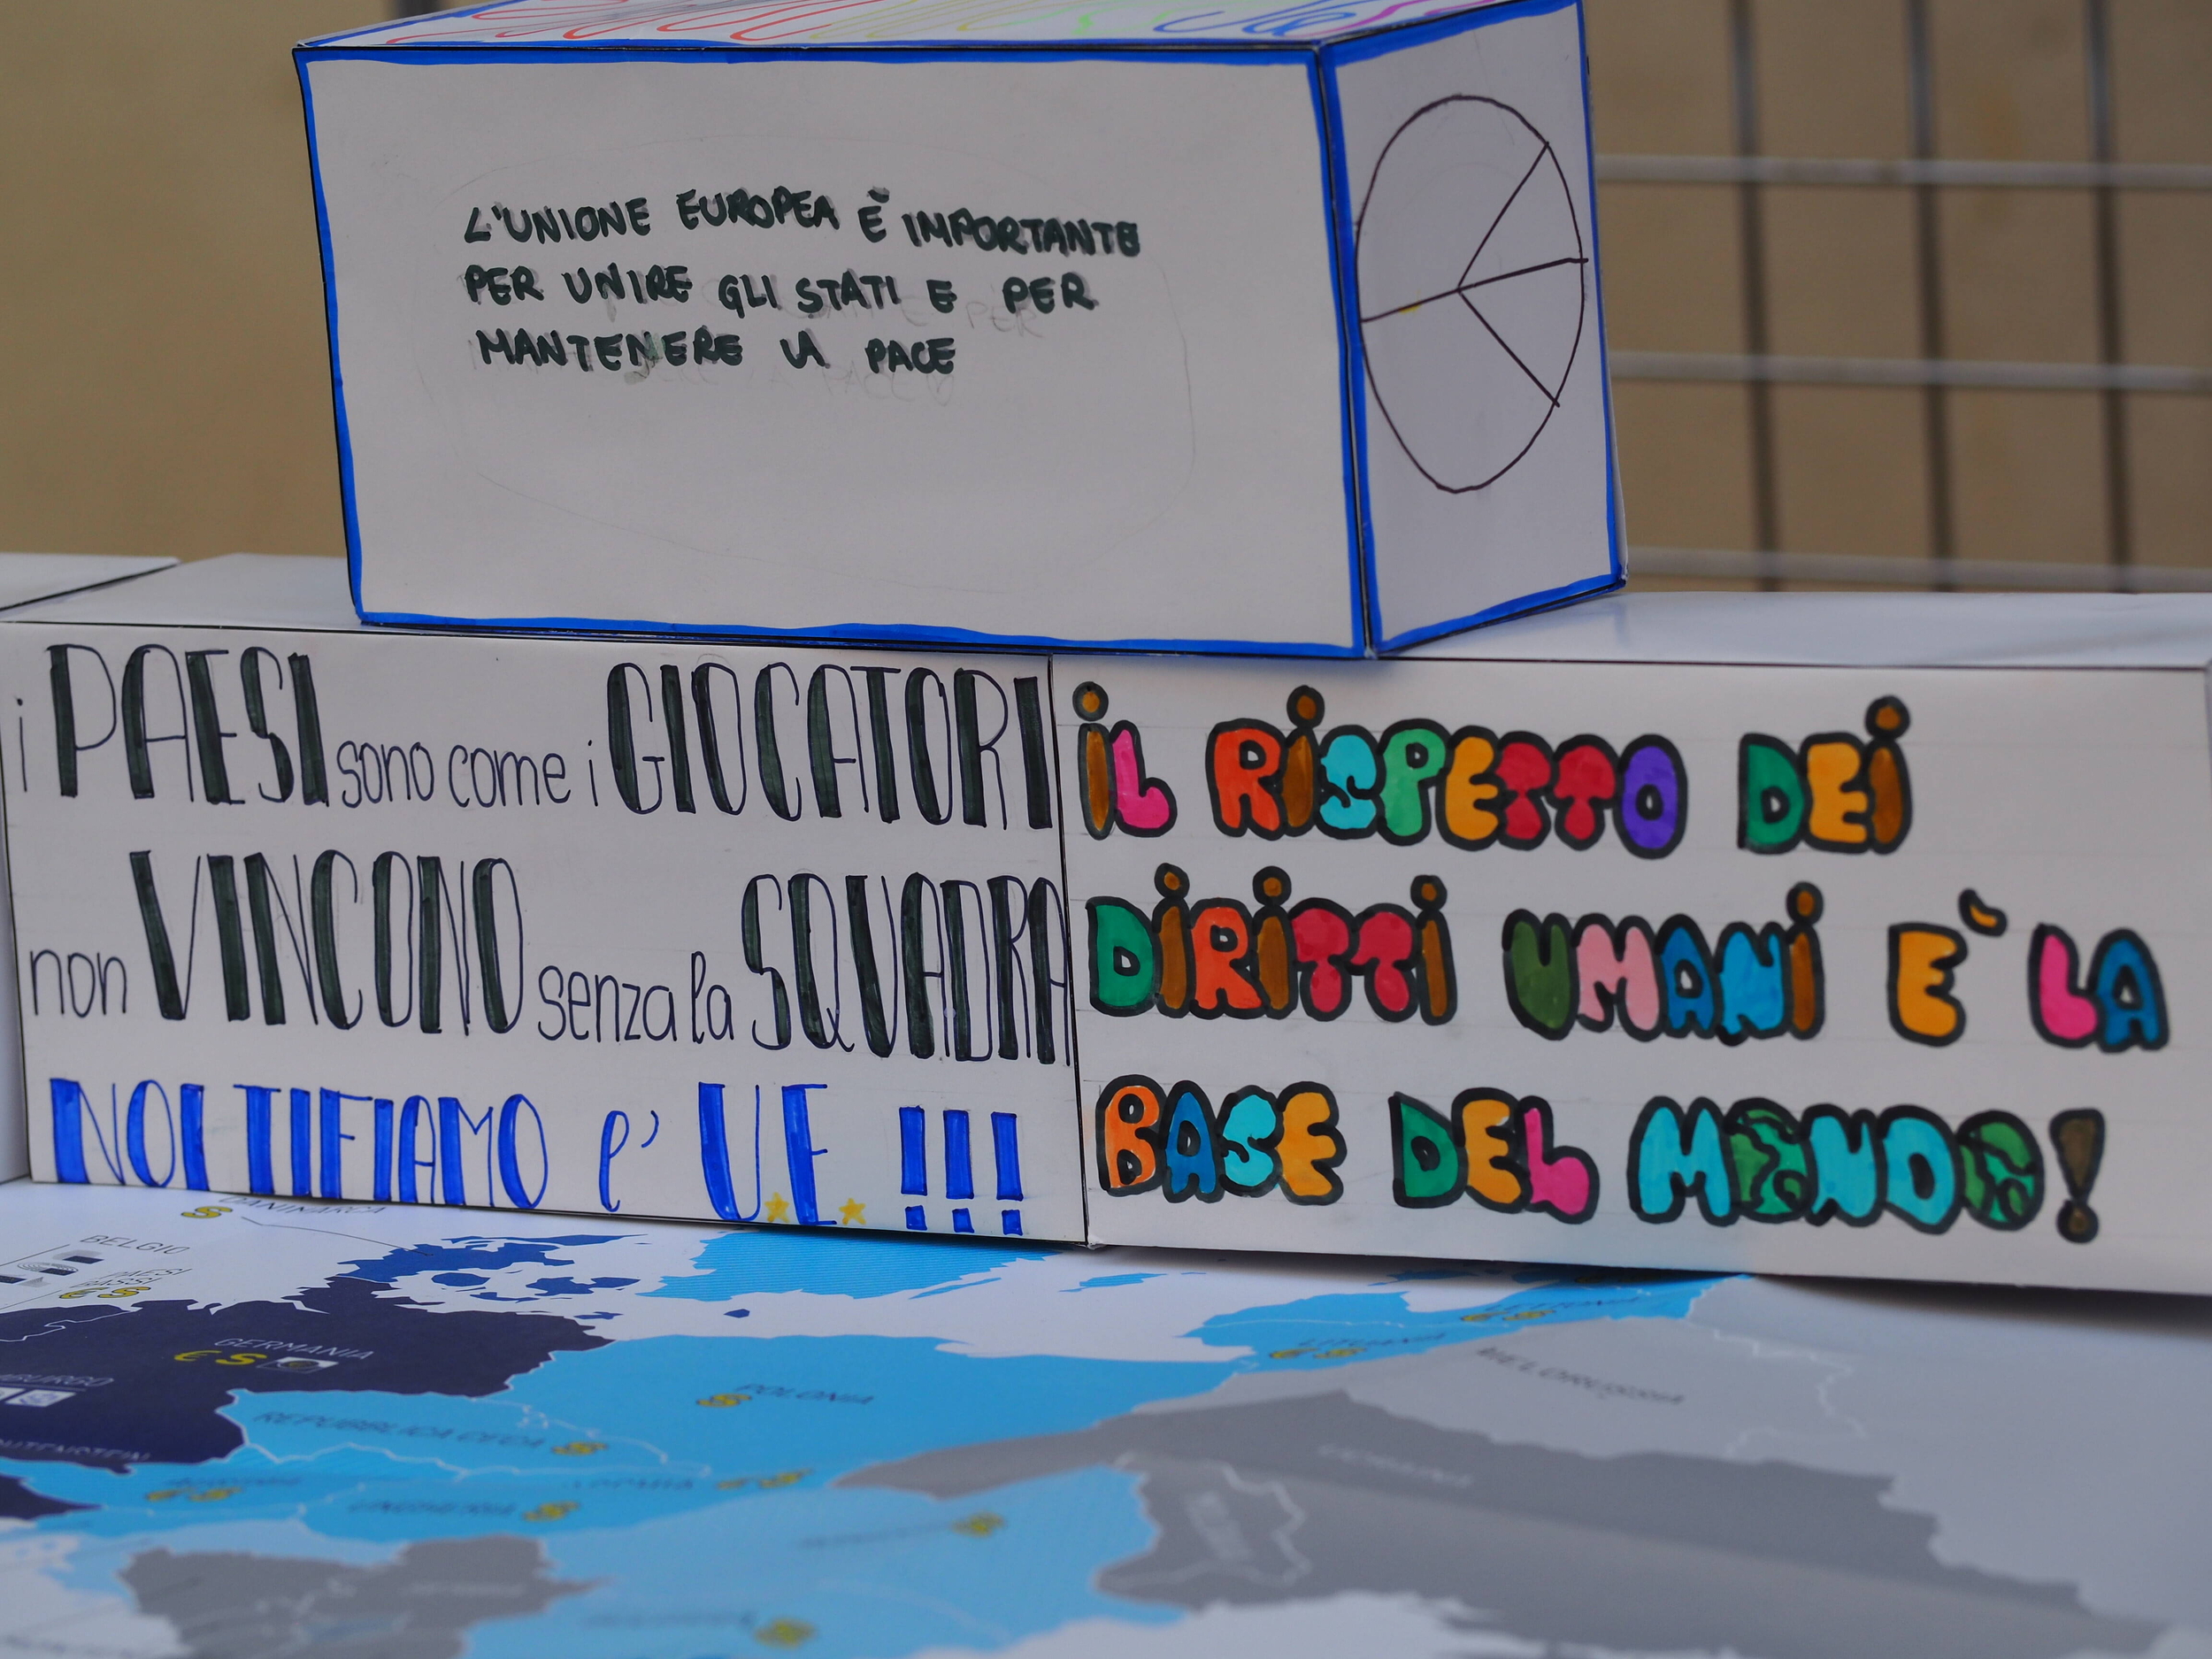 L'UNIONE EUROPEA È IMPORTANTE
PER UNIRE GLI STATI E PER
MANTENERE LA PACE
i PAESI sono come i GIOCATORI
non VINCONO senza la SQUADRA
NOI TIFIAMO e' U.E. !!!
iL RiSPETTO DEi
DiRiTTi UMANi E` LA
BASE DEL MONDO!
DANIMARCA
BELGIO
PAESI
BASSI
GERMANIA
POLONIA
REPUBBLICA CECA
LITUANIA
LETTONIA
BIELORUSSIA
UCRAINA
UNGHERIA